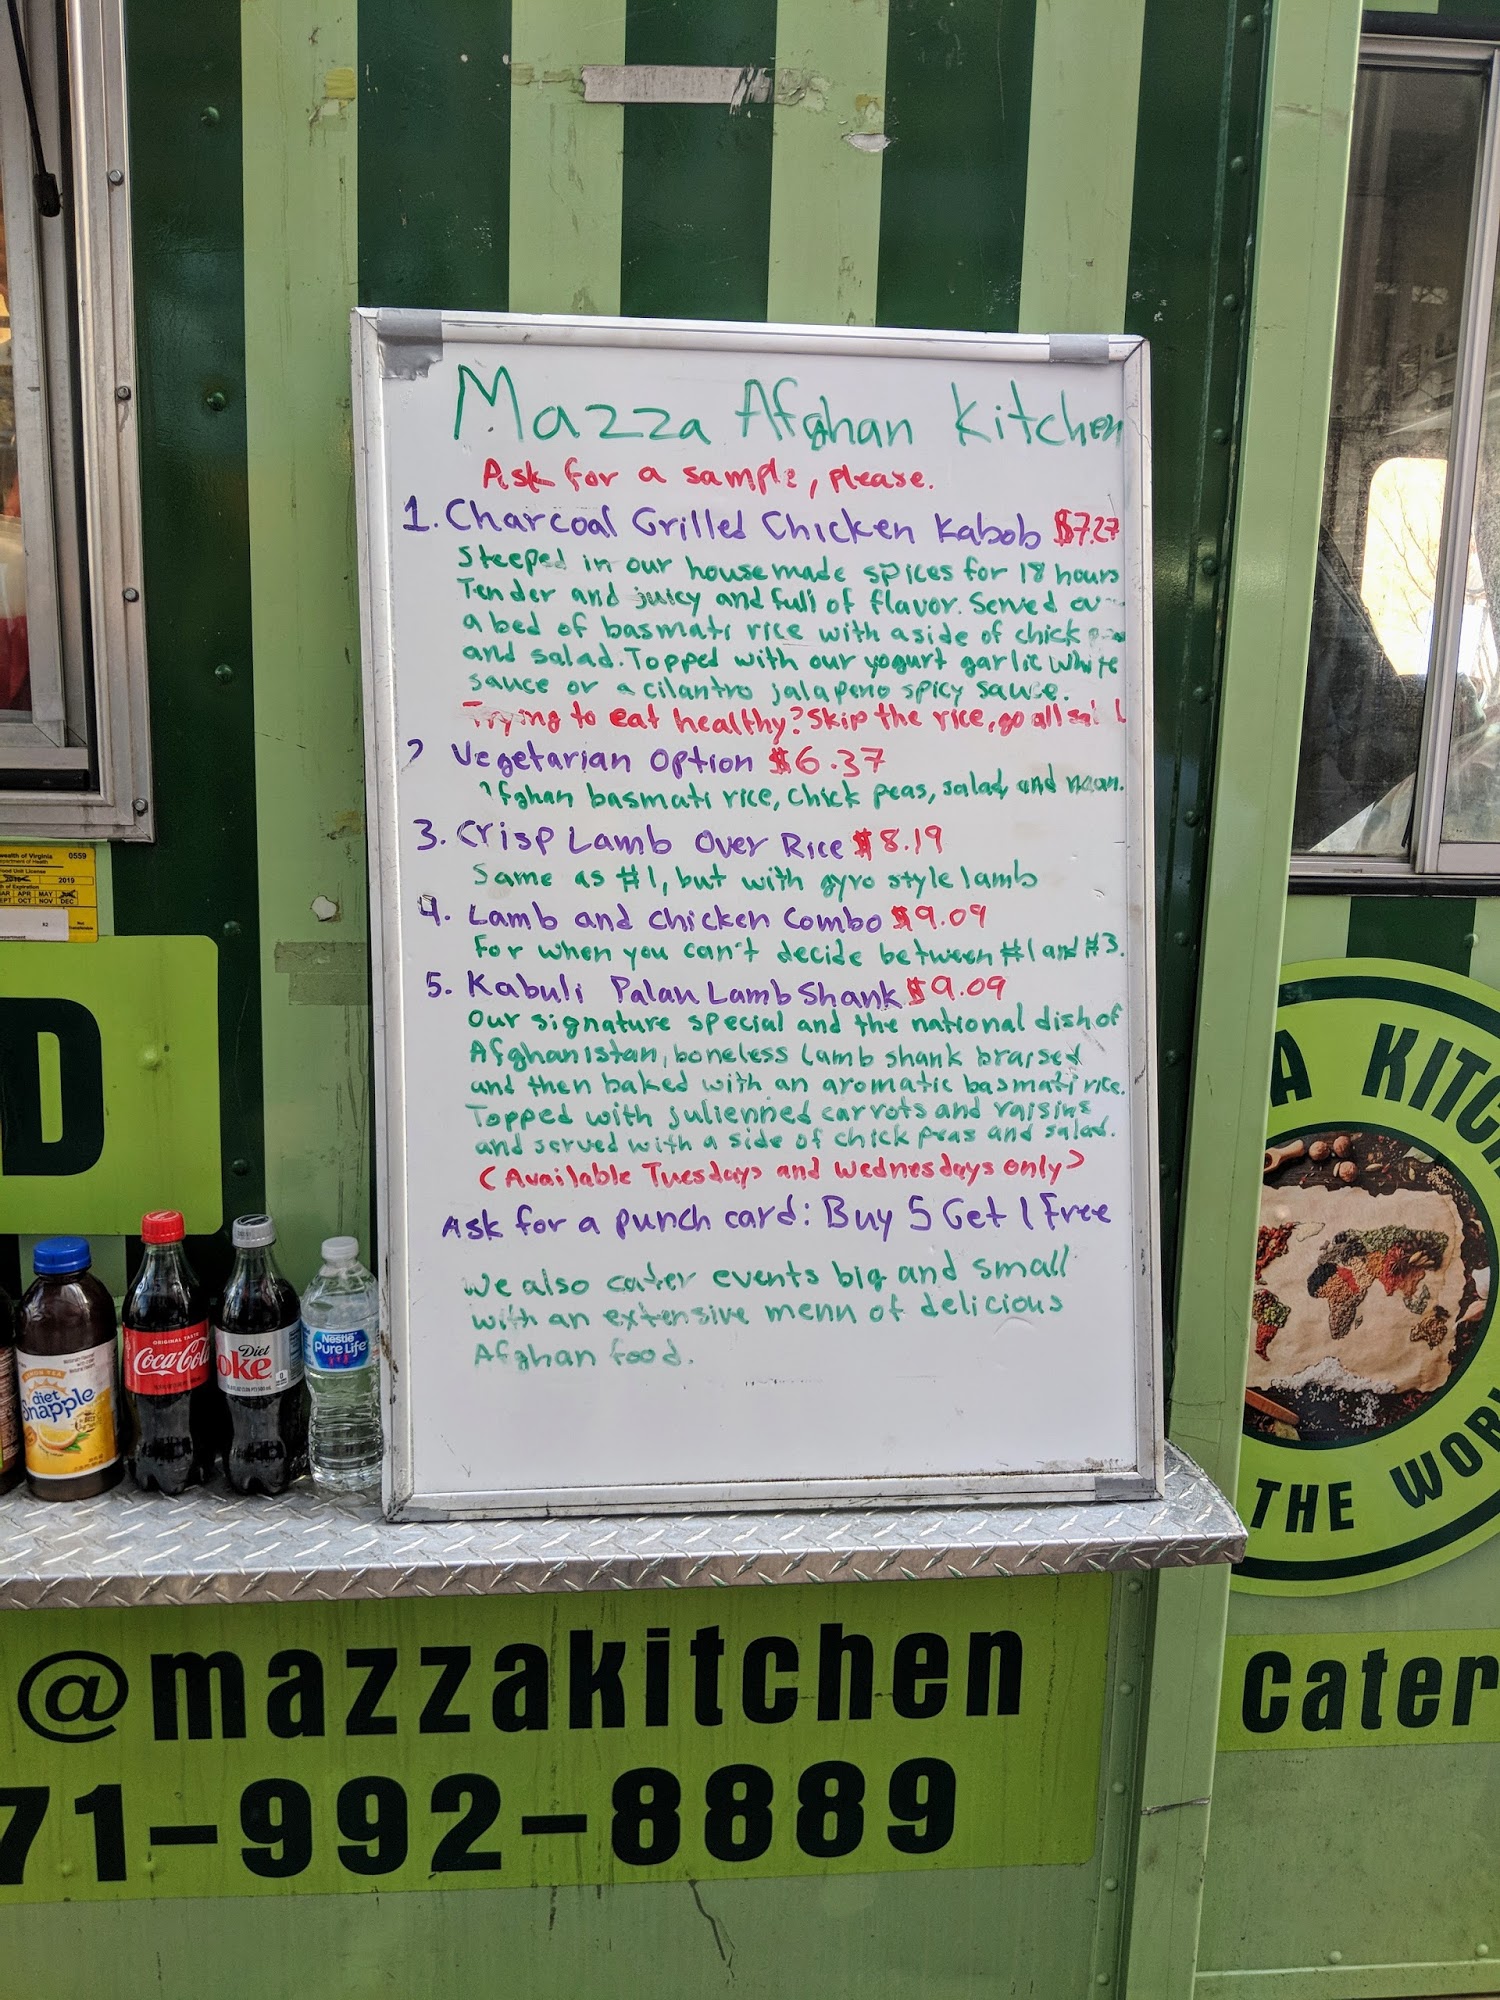 Mazza Afghan Kitchen
Ask for a sample, please.
1. Charcoal Grilled Chicken Kabob $7.27
Steeped in our housemade spices for 18 hours
Tender and juicy and full of flavor. Served
a bed of basmati rice with a side of chick
and salad. Topped with our yogurt garlic white
sauce or a cilantro jalapeno spicy sauce.
Trying to eat healthy? Skip the rice, go all
2 Vegetarian Option $6.37
Afghan basmati rice, chick peas, salad and naan.
3. Crisp Lamb Over Rice $8.19
Same as #1, but with gyro style lamb
4. Lamb and chicken Combo $9.09
For when you can't decide between #1 and #3.
5. Kabuli Palau Lamb Shank $9.09
Our signature special and the national dish of
Afghanistan, boneless lamb shank braised
and then baked with an aromatic basmati rice.
Topped with julienned carrots and raisins
and served with a side of chick peas and salad.
(Available Tuesdays and Wednesdays only)
Ask for a punch card: Buy 5 Get 1 Free
We also cater events big and small
with an extensive menu of delicious
Afghan food.
0559
2019
D
diet
Snapple
ORIGINAL TASTE
Coca-Cola
Diet
oke
Nestle
Pure Life
A KITC
THE WOR
@mazzakitchen
71-992-8889
Cater